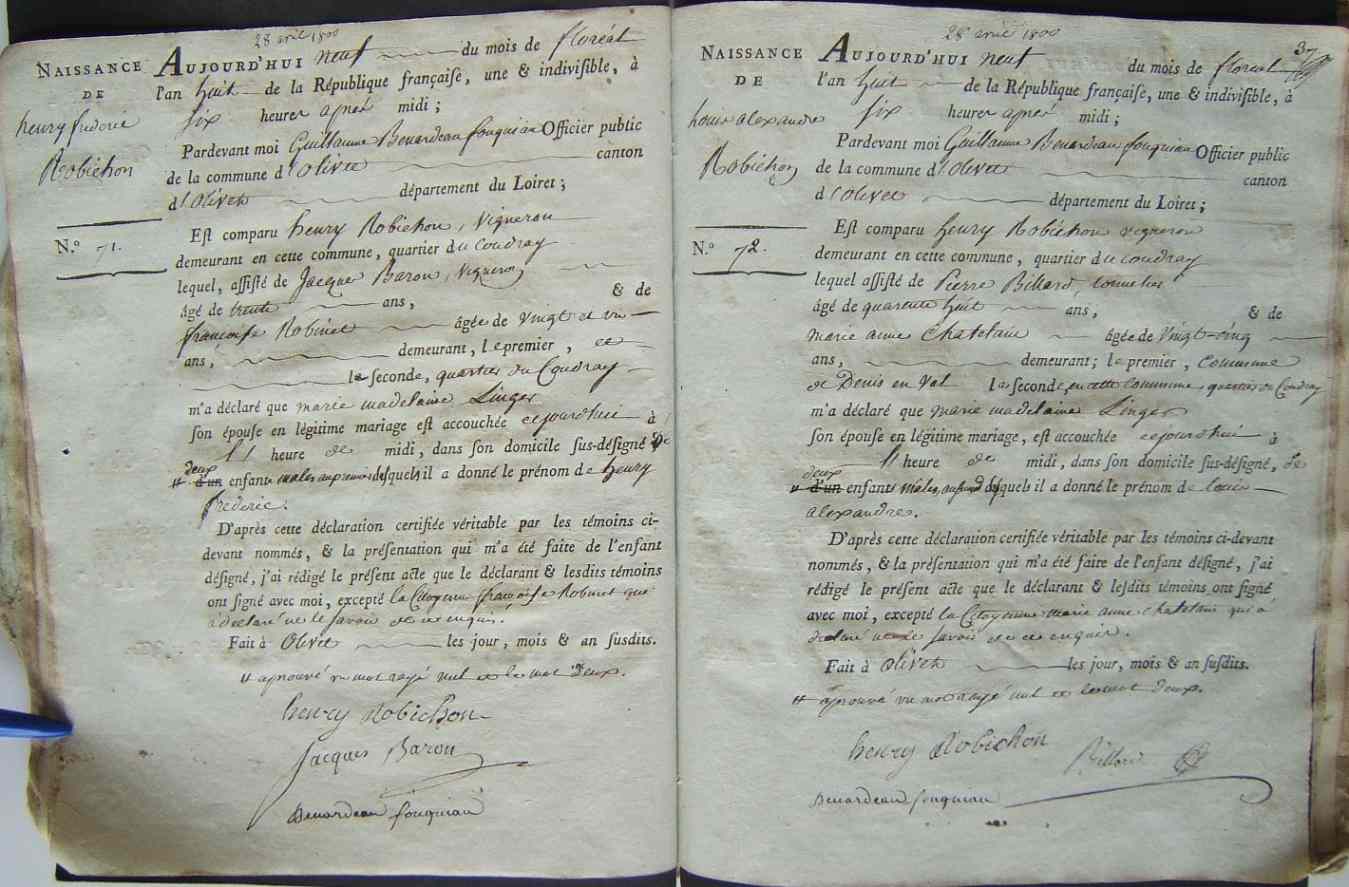 28 avril 1800
NAISSANCE
DE
henry frederic
Robichon
N.º 71.
AUJOURD'HUI neuf du mois de floréal
l'an huit de la République françaiſe, une & indiviſible, à
ſix heures après midi ;
Pardevant moi Guillaume Benardeau fouquiau Officier public
de la commune d'Olivet canton
d'Olivet département du Loiret ;
Eſt comparu henry Robichon, vigneron
demeurant en cette commune, quartier du Coudray
lequel, aſſiſté de Jacque Baron, vigneron
âgé de trente ans, & de
françoiſe Robinet âgée de vingt et un
ans, demeurant, le premier, et
la ſeconde, quartier du Coudray
m'a déclaré que marie madelaine Linger
ſon épouse en légitime mariage eſt accouchée cejourdhui à
11 heure de midi, dans ſon domicile ſus-déſigné De
deux
# d'un enfants males au premier deſquels il a donné le prénom de henry
frederic.
D'après cette déclaration certifiée véritable par les témoins ci-
devant nommés, & la préſentation qui m'a été faite de l'enfant
déſigné, j'ai rédigé le préſent acte que le déclarant & leſdits témoins
ont ſigné avec moi, excepté la Citoyenne françoiſe Robinet qui
a déclaré ne le ſavoir de ce enquis.
Fait à Olivet les jour, mois & an ſusdits.
# aprouvé un mot rayé nul et le mot deux.
henry Robichon
Jacques Baron
Benardeau fouquiau
28 avril 1800
37
NAISSANCE
DE
louis alexandre
Robichon
N.º 72.
AUJOURD'HUI neuf du mois de floréal
l'an huit de la République françaiſe, une & indiviſible, à
ſix heures après midi ;
Pardevant moi Guillaume Benardeau fouquiau Officier public
de la commune d'Olivet canton
d'Olivet département du Loiret ;
Eſt comparu henry Robichon vigneron
demeurant en cette commune, quartier du Coudray
lequel aſſiſté de Pierre Billard, tonnelier
âgé de quarente huit ans, & de
marie anne Chatelain âgée de vingt-cinq
ans, demeurant ; le premier, commune
de Denis en Val la ſeconde, en cette commune, quartier du Coudray
m'a déclaré que marie madelaine Linger
ſon épouſe en légitime mariage, eſt accouchée cejourdhui à
11 heure de midi, dans ſon domicile ſus-déſigné, de
deux
# d'un enfants males, au second deſquels il a donné le prénom de louis
alexandre.
D'après cette déclaration certifiée véritable par les témoins ci-devant
nommés, & la préſentation qui m'a été faite de l'enfant déſigné, j'ai
rédigé le préſent acte que le déclarant & leſdits témoins ont ſigné
avec moi, excepté la Citoyenne marie anne chatelain qui a
déclaré ne le ſavoir de ce enquis.
Fait à Olivet les jour, mois & an ſuſdits.
# aprouvé un mot rayé nul et le mot deux.
henry Robichon
Billard
Benardeau fouquiau